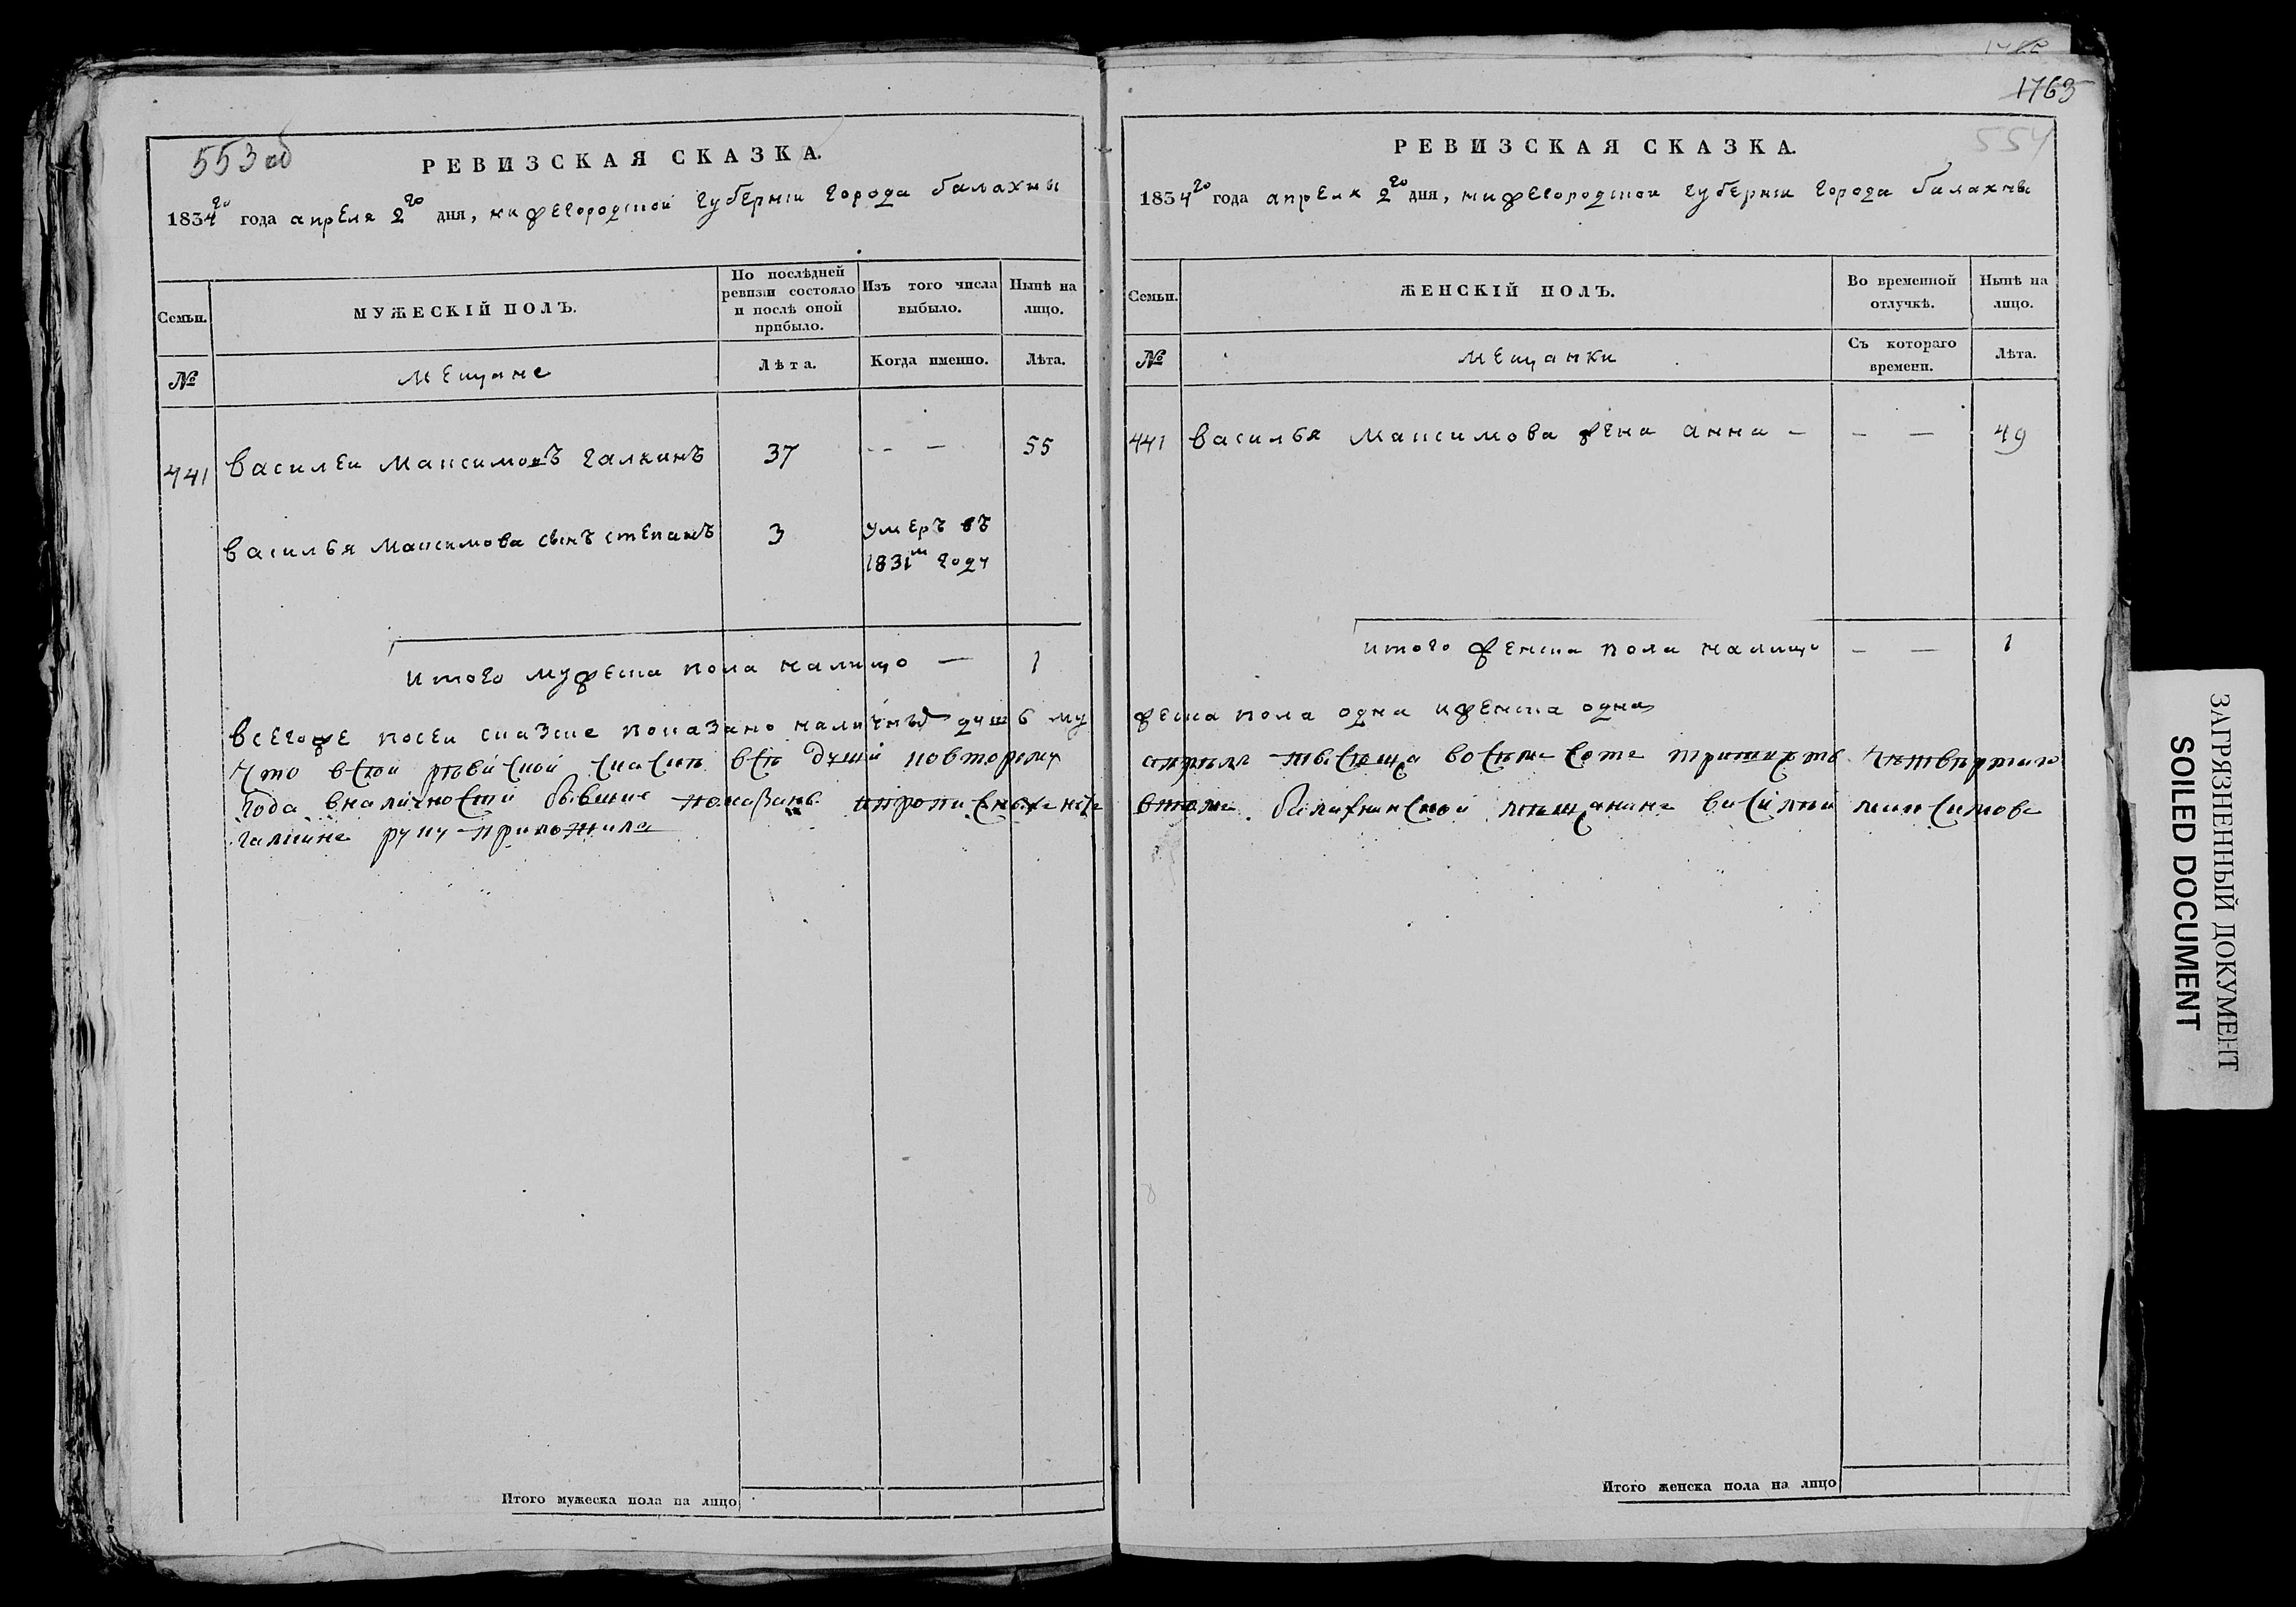 553 об
РЕВИЗСКАЯ СКАЗКА.
1834го года апреля 2го дня, нижегородской губернии города балахны
Семьи.
МУЖЕСКІЙ ПОЛЪ.
По послѣдней ревизіи состояло и послѣ оной прибыло.
Изъ того числа выбыло.
Нынѣ на лицо.
№
мещане
Лѣта.
Когда именно.
Лѣта.
441 василеи Максимовъ галкинъ 37 - - — 55
василья Максимова сынъ степанъ 3 умеръ въ
1831м году
итого мужеска пола налицо — 1
всегоже посеи сказке показано наличныхъ душъ му
что всей ревиской скаске все души повторому
года вналичности бывшие показаны
галкине руку приложила
Итого мужеска пола на лицо
1763
554
РЕВИЗСКАЯ СКАЗКА.
1834го года апреля 2го дня, нижегородской губернии города балахны
Семьи.
ЖЕНСКІЙ ПОЛЪ.
Во временной отлучкѣ.
Нынѣ на лицо.
№
мещанки
Съ котораго времени.
Лѣта.
441 василья максимова жена анна — — — 49
итого женска пола налицо — — 1
жеска пола одна иженска одна
апреля тысеща восемсоте тритцеть четвертаго
втоме балахнинской мещанине василей максимове
Итого женска пола на лицо
ЗАГРЯЗНЕННЫЙ ДОКУМЕНТ
SOILED DOCUMENT